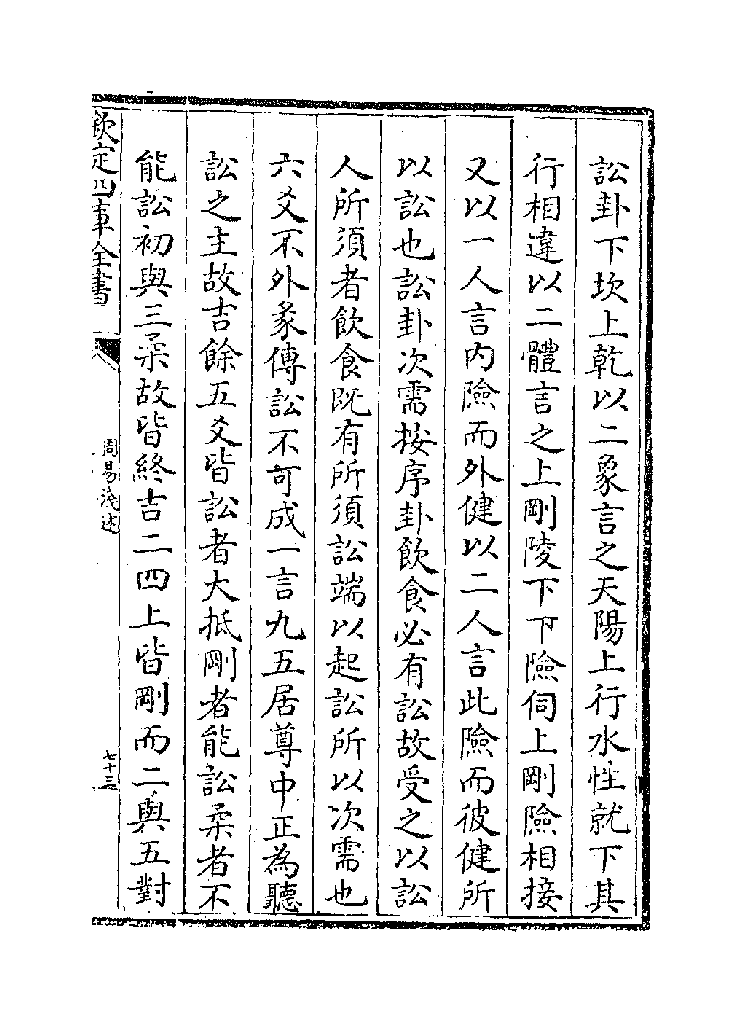 訟卦下坎上乾以二象言之天陽上行水性就下其
行相違以二體言之上剛陵下下險伺上剛險相接
又以一人言内險而外健以二人言此險而彼健所
以訟也訟卦次需按序卦飲食必有訟故受之以訟
人所須者飲食既有所須訟端以起訟所以次需也
六爻不外彖傳訟不可成一言九五居尊中正為聽
訟之主故吉餘五爻皆訟者大抵剛者能訟柔者不
能訟初與三柔故皆終吉二四上皆剛而二與五對
欽定四庫全書
周易淺述
七十三